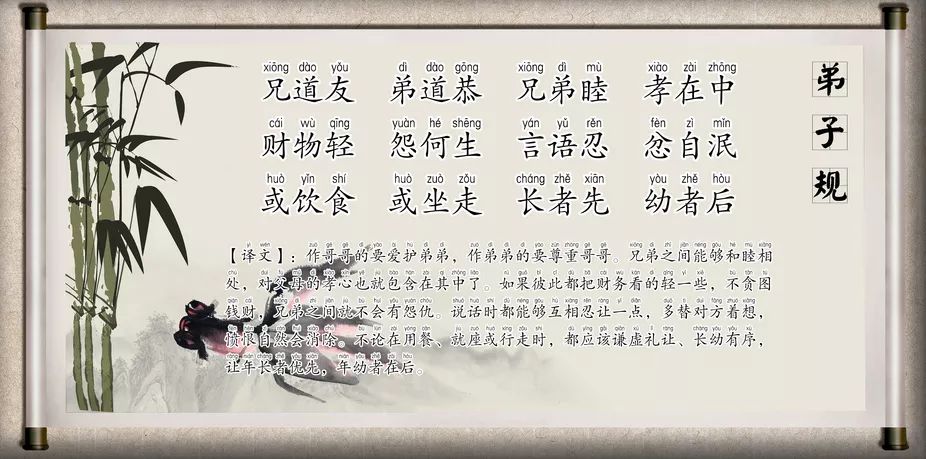 弟子规
xiōng dào yǒu dì dào gōng xiōng dì mù xiào zài zhōng
兄道友 弟道恭 兄弟睦 孝在中
cái wù qīng yuàn hé shēng yán yǔ rěn fèn zì mǐn
财物轻 怨何生 言语忍 忿自泯
huò yǐn shí huò zuò zǒu cháng zhě xiān yòu zhě hòu
或饮食 或坐走 长者先 幼者后
【译文】：作哥哥的要爱护弟弟，作弟弟的要尊重哥哥。兄弟之间能够和睦相
处，对父母的孝心也就包含在其中了。如果彼此都把财务看的轻一些，不贪图
钱财，兄弟之间就不会有怨仇。说话时都能够互相忍让一点，多替对方着想，
愤恨自然会消除。不论在用餐、就座或行走时，都应该谦虚礼让、长幼有序，
让年长者优先，年幼者在后。